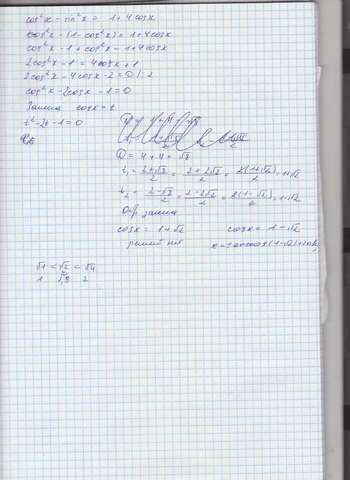 cos²x − sin²x = 1+4cosx
cos²x − (1−cos²x) = 1+4cosx
cos²x − 1 + cos²x = 1+4cosx
2cos²x − 1 = 4cosx + 1
2cos²x − 4cosx − 2 = 0 /:2
cos²x − 2cosx − 1 = 0
Замена cosx = t
t² − 2t − 1 = 0
D = 4+4 = √8
t₁ = 2+√8/2 = 2+2√2/2 = 2(1+√2)/2 = 1+√2
t₂ = 2−√8/2 = 2−2√2/2 = 2(1−√2)/2 = 1−√2
Обр замена
cosx = 1+√2 cosx = 1−√2
решений нет x = ±arccos(1−√2)+2πk
√1 < √2 < √4
1 1,3 2